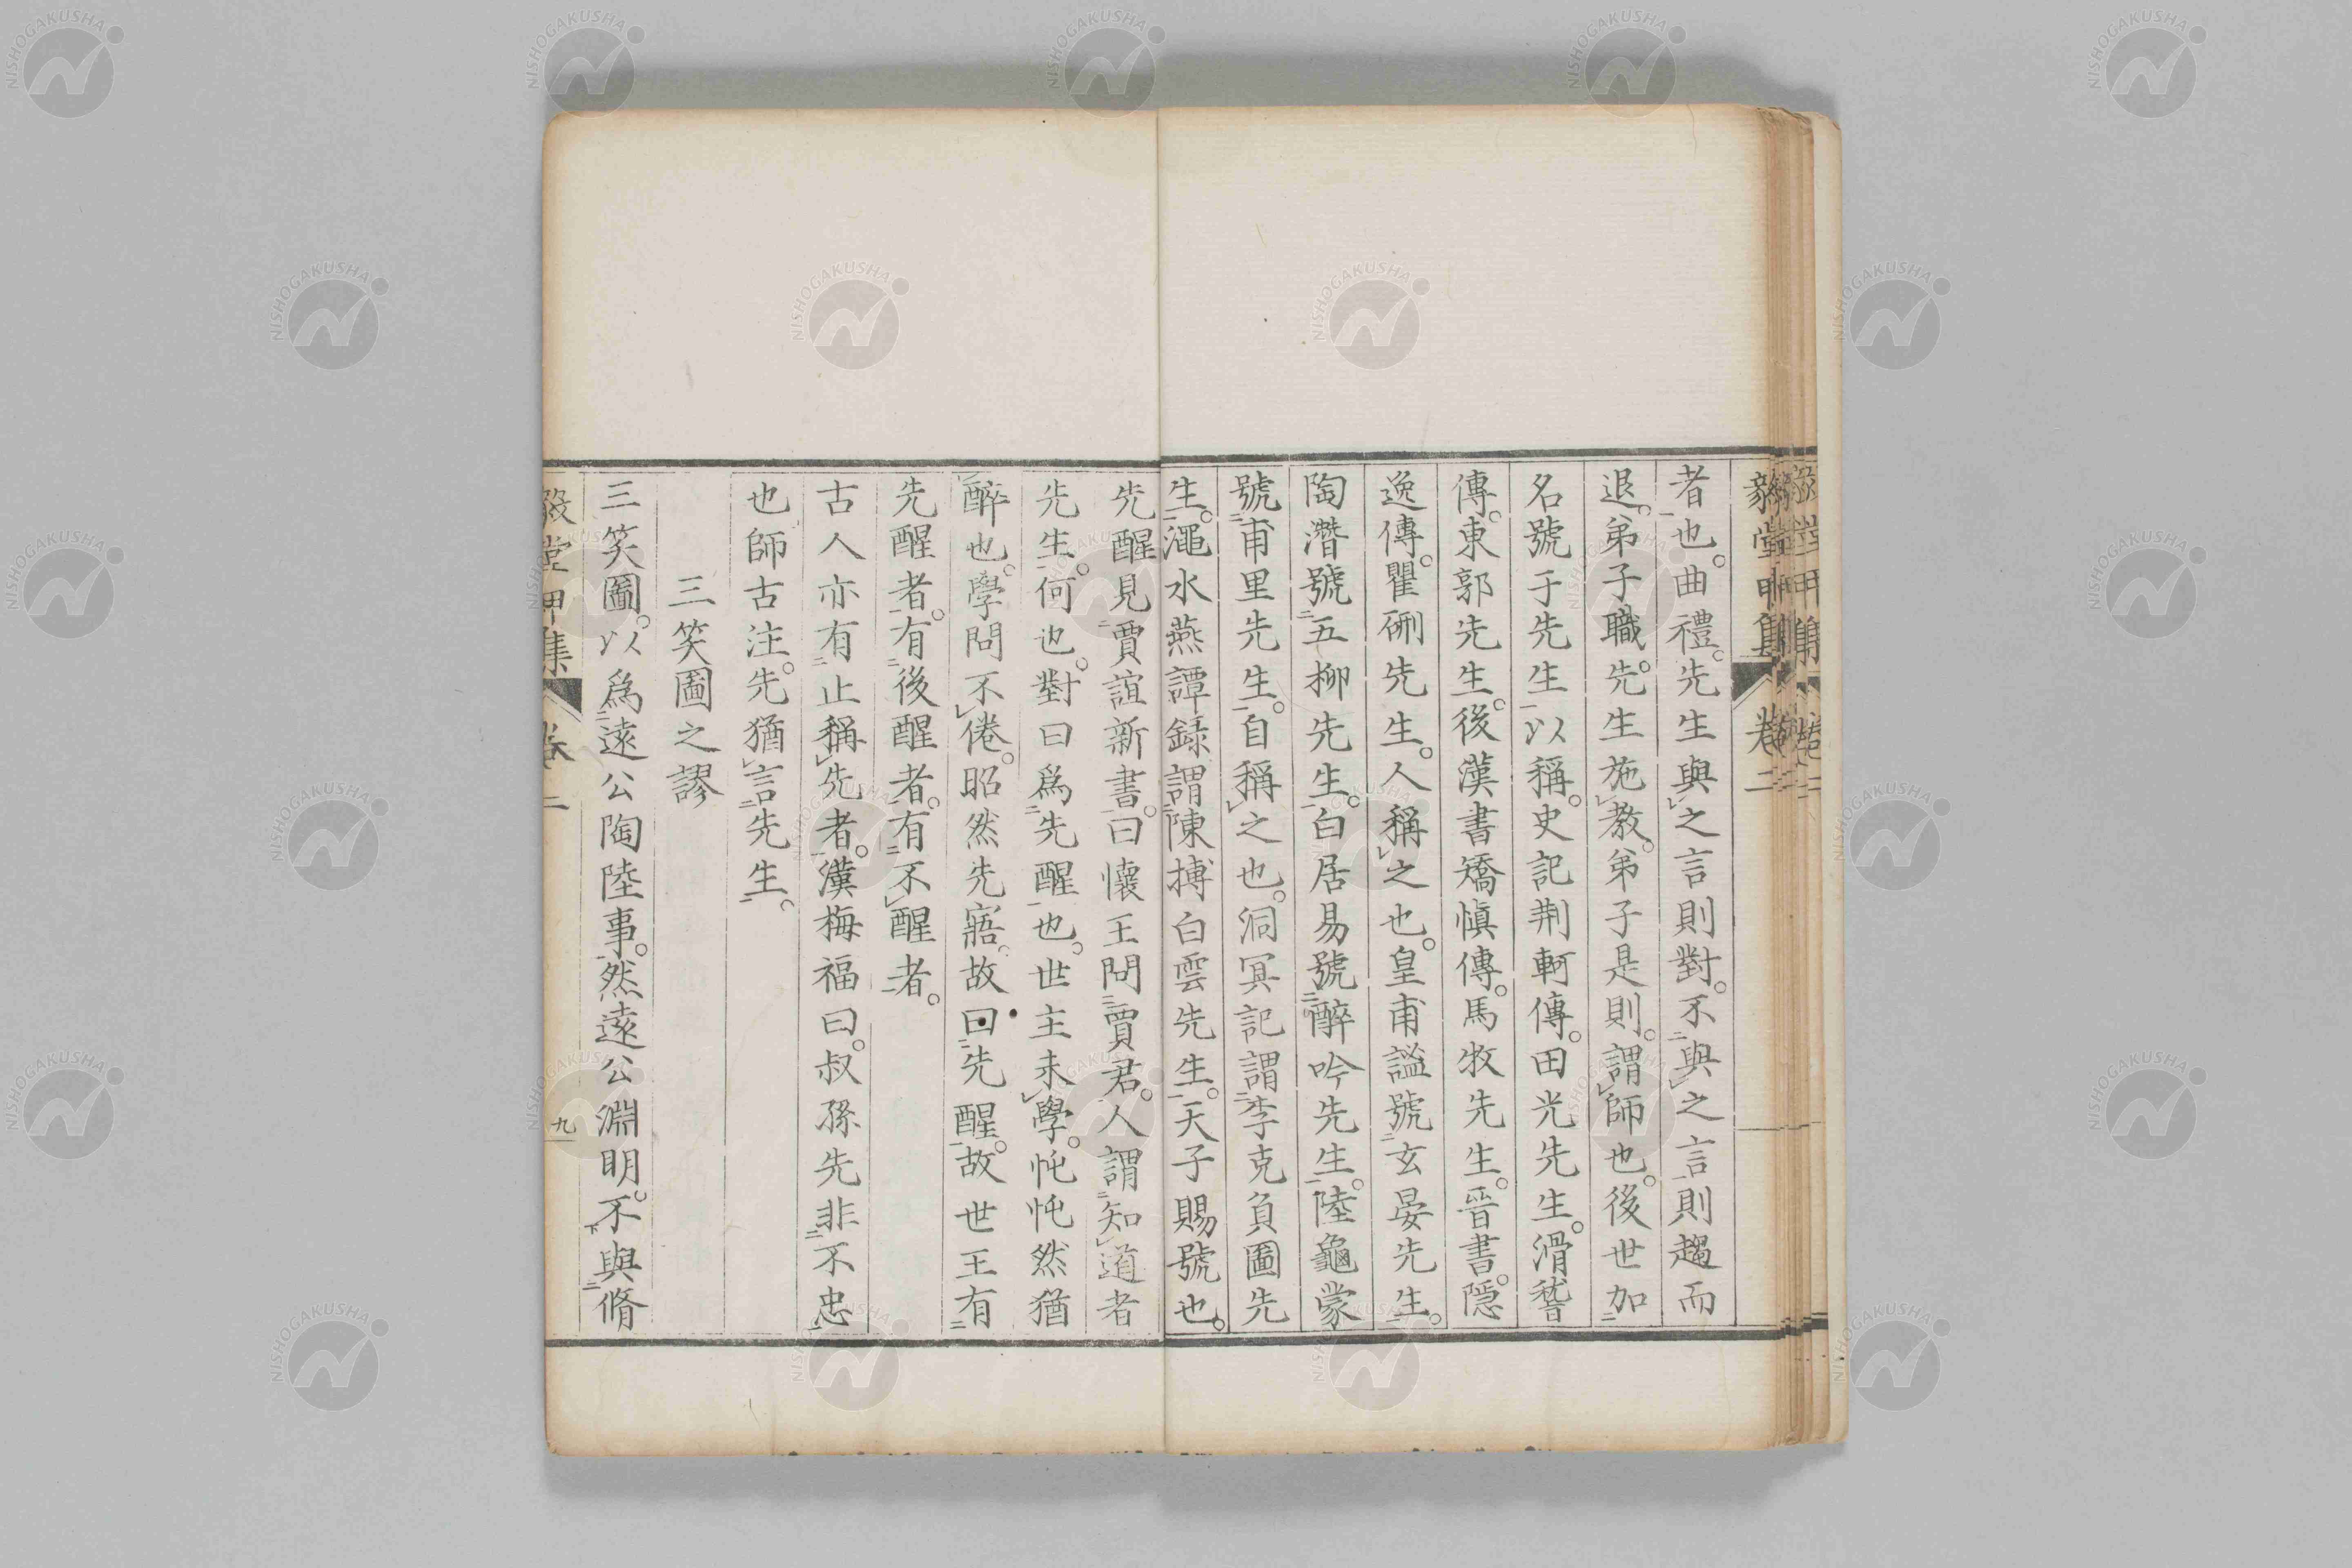 毅堂甲集 卷二
者也。曲禮。先生與之言則對。不與之言則趨而
退。弟子職。先生施教。弟子是則。謂師也。後世加
名號于先生以稱。史記荆軻傳。田光先生。滑稽
傳。東郭先生。後漢書矯慎傳。馬牧先生。晉書。隱
逸傳。瞿硎先生。人稱之也。皇甫謐號玄晏先生。
陶潛號五柳先生。白居易號醉吟先生。陸龜蒙
號甫里先生。自稱之也。洞冥記謂李克負圖先
生。澠水燕譚録謂陳搏白雲先生。天子賜號也。
先醒見賈誼新書。曰懷王問賈君。人謂知道者
先生。何也。對曰爲先醒也。世主未學。忳忳然猶
醉也。學問不倦。昭然先寤。故曰先醒。故世王有
先醒者。有後醒者。有不醒者。
古人亦有止稱先者。漢梅福曰。叔孫先非不忠
也師古注。先猶言先生。
三笑圖之謬
三笑圖。以爲遠公陶陸事。然遠公淵明。不與脩
毅堂甲集 卷二 九
NISHOGAKUSHA